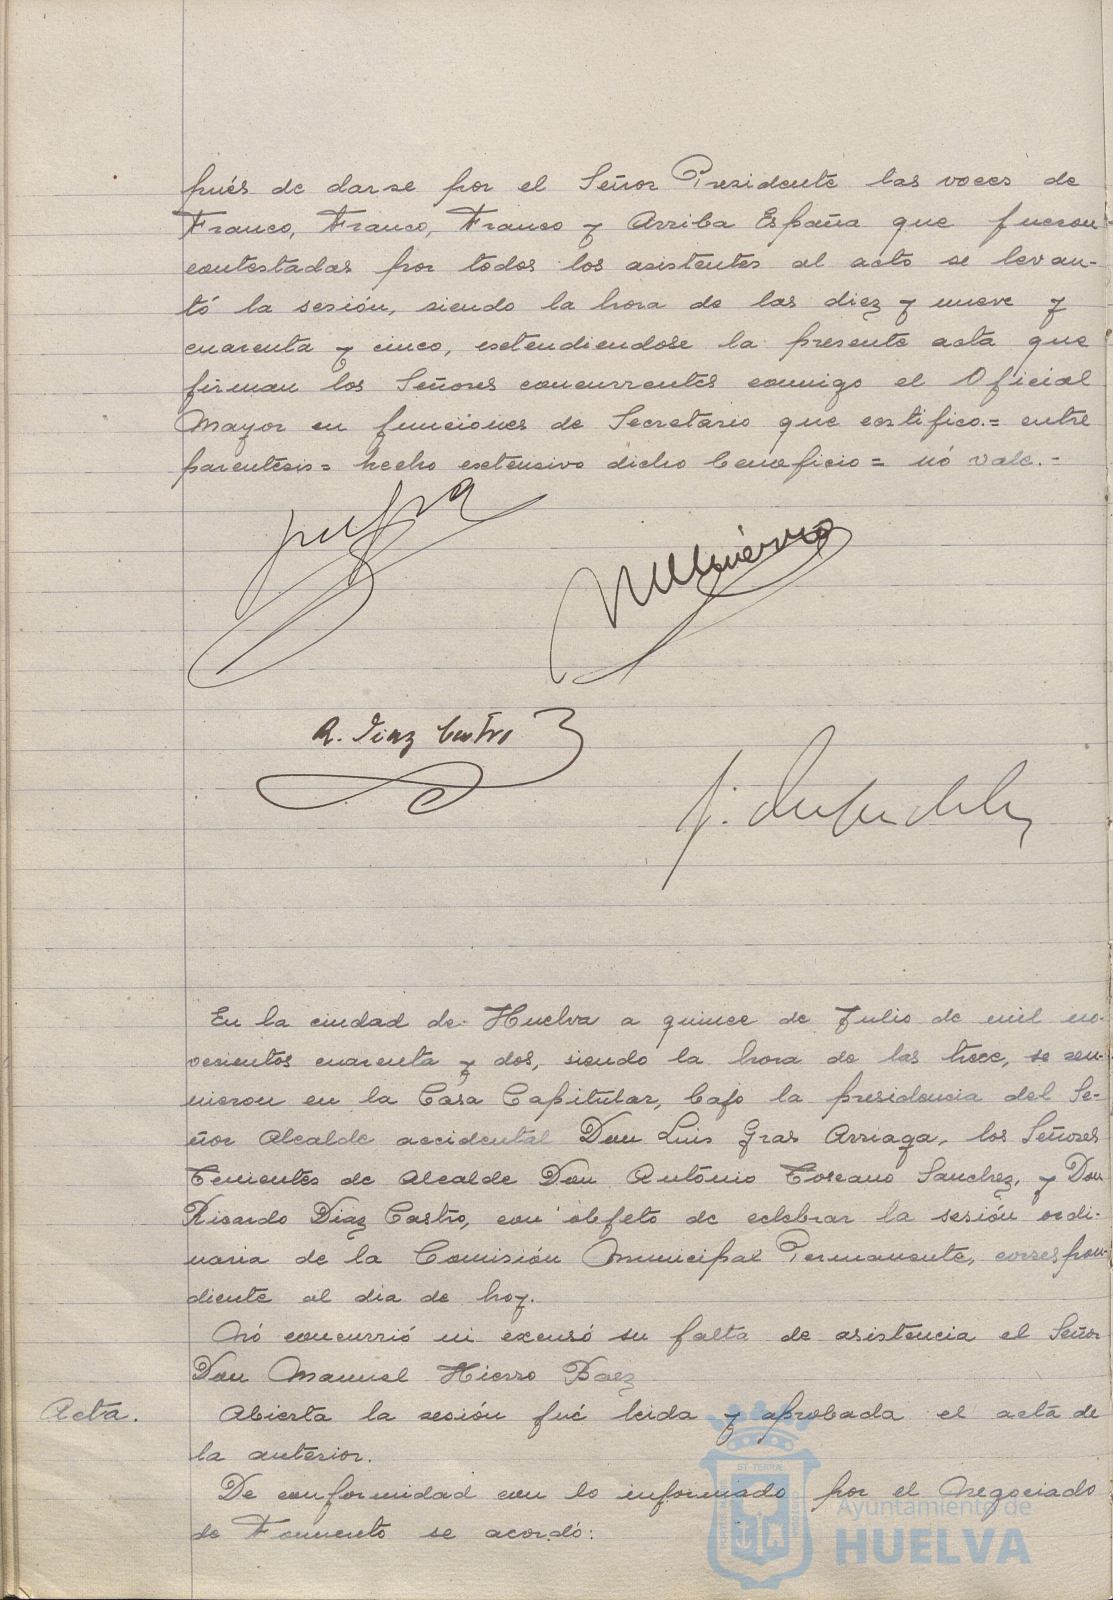 pués de darse por el Señor Presidente las voces de
Franco, Franco, Franco y Arriba España que fueron
contestadas por todos los asistentes al acto se levan-
tó la sesión, siendo la hora de las diez y nueve y
cuarenta y cinco, estendiendose la presente acta que
firman los Señores concurrentes conmigo el Oficial
Mayor en funciones de Secretario que certifico.= entre
parentesis= hecho estensivo dicho beneficio= nó vale.-
R. Diaz Castro
En la ciudad de Huelva a quince de Julio de mil no-
vecientos cuarenta y dos, siendo la hora de las trece, se reu-
nieron en la Casa Capitular, bajo la presidencia del Se-
ñor Alcalde accidental Don Luis Gras Arriaga, los Señores
Tenientes de Alcalde Don António Toscano Sanchez, y Don
Ricardo Diaz Castro, con objeto de celebrar la sesión ordi-
naria de la Comisión Municipal Permanente, correspon-
diente al dia de hoy.
Nó concurrió ni excusó su falta de asistencia el Señor
Don Manuel Hierro Baez
Acta.
Abierta la sesión fué leida y aprobada el acta de
la anterior.
De conformidad con lo informado por el Negociado
de Fomento se acordó:
Ayuntamiento de
HUELVA